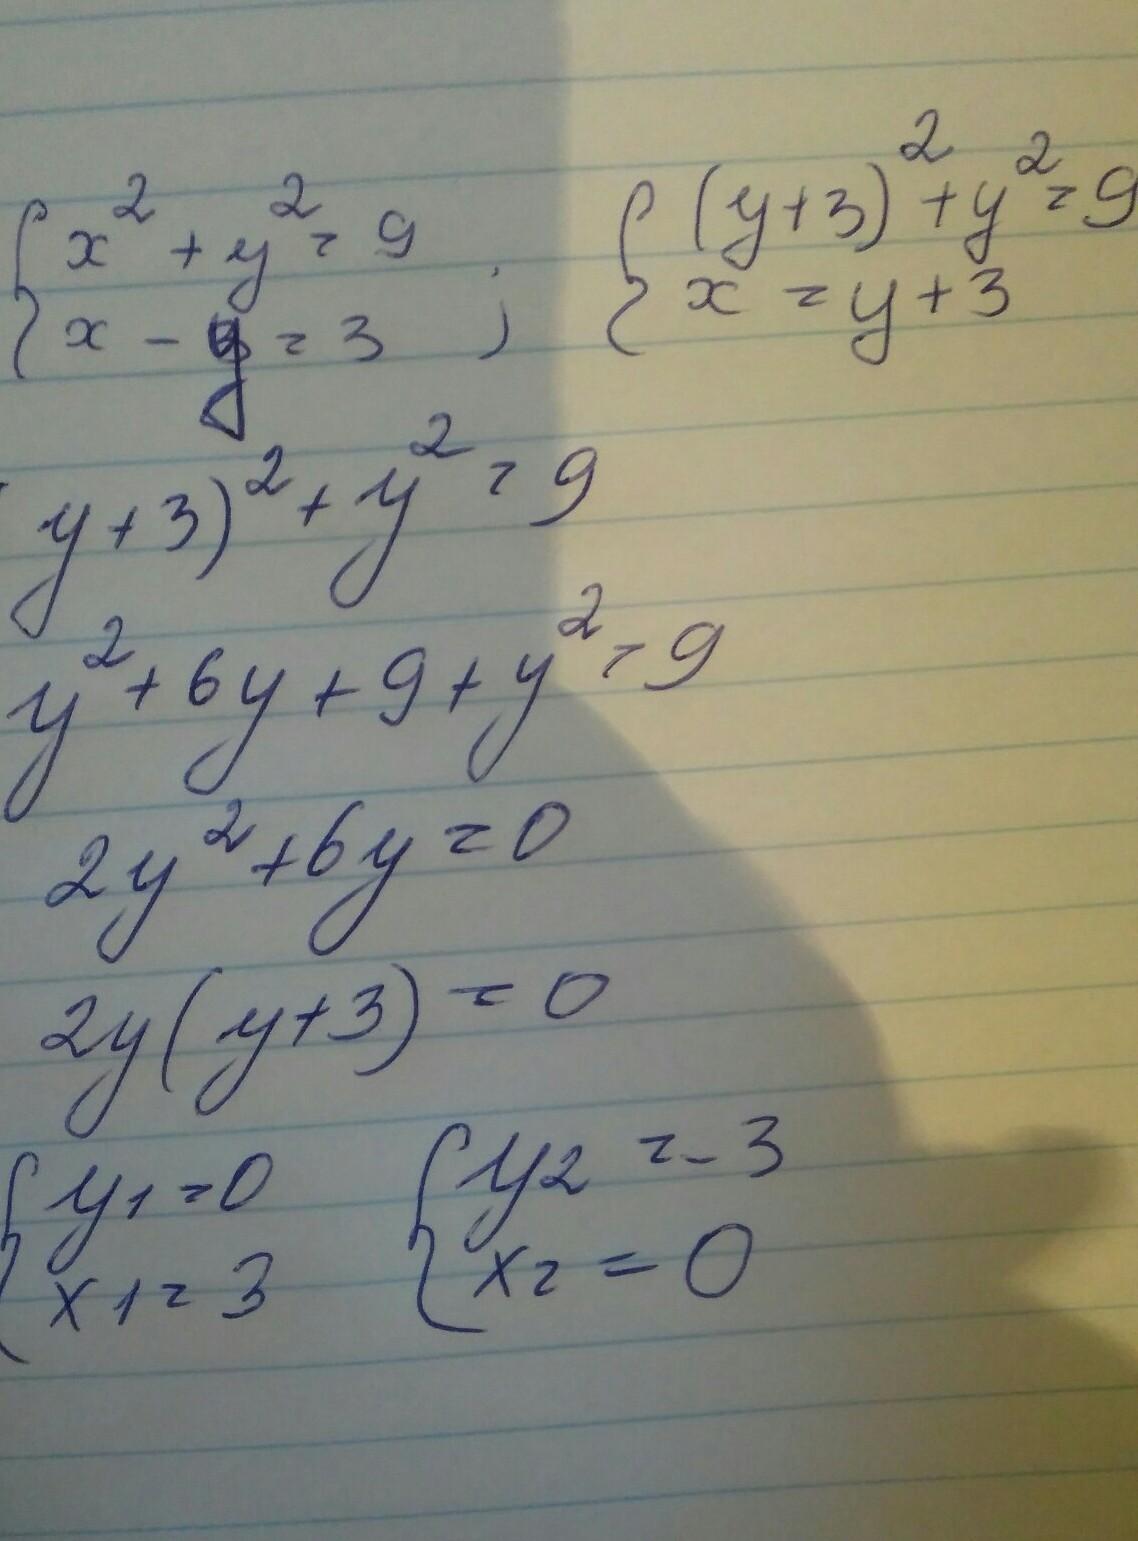 { x² + y² = 9 ; { (y+3)² + y² = 9
x - y = 3 x = y + 3
(y+3)² + y² = 9
y² + 6y + 9 + y² = 9
2y² + 6y = 0
2y(y+3) = 0
{ y1 = 0 { y2 = -3
x1 = 3 x2 = 0